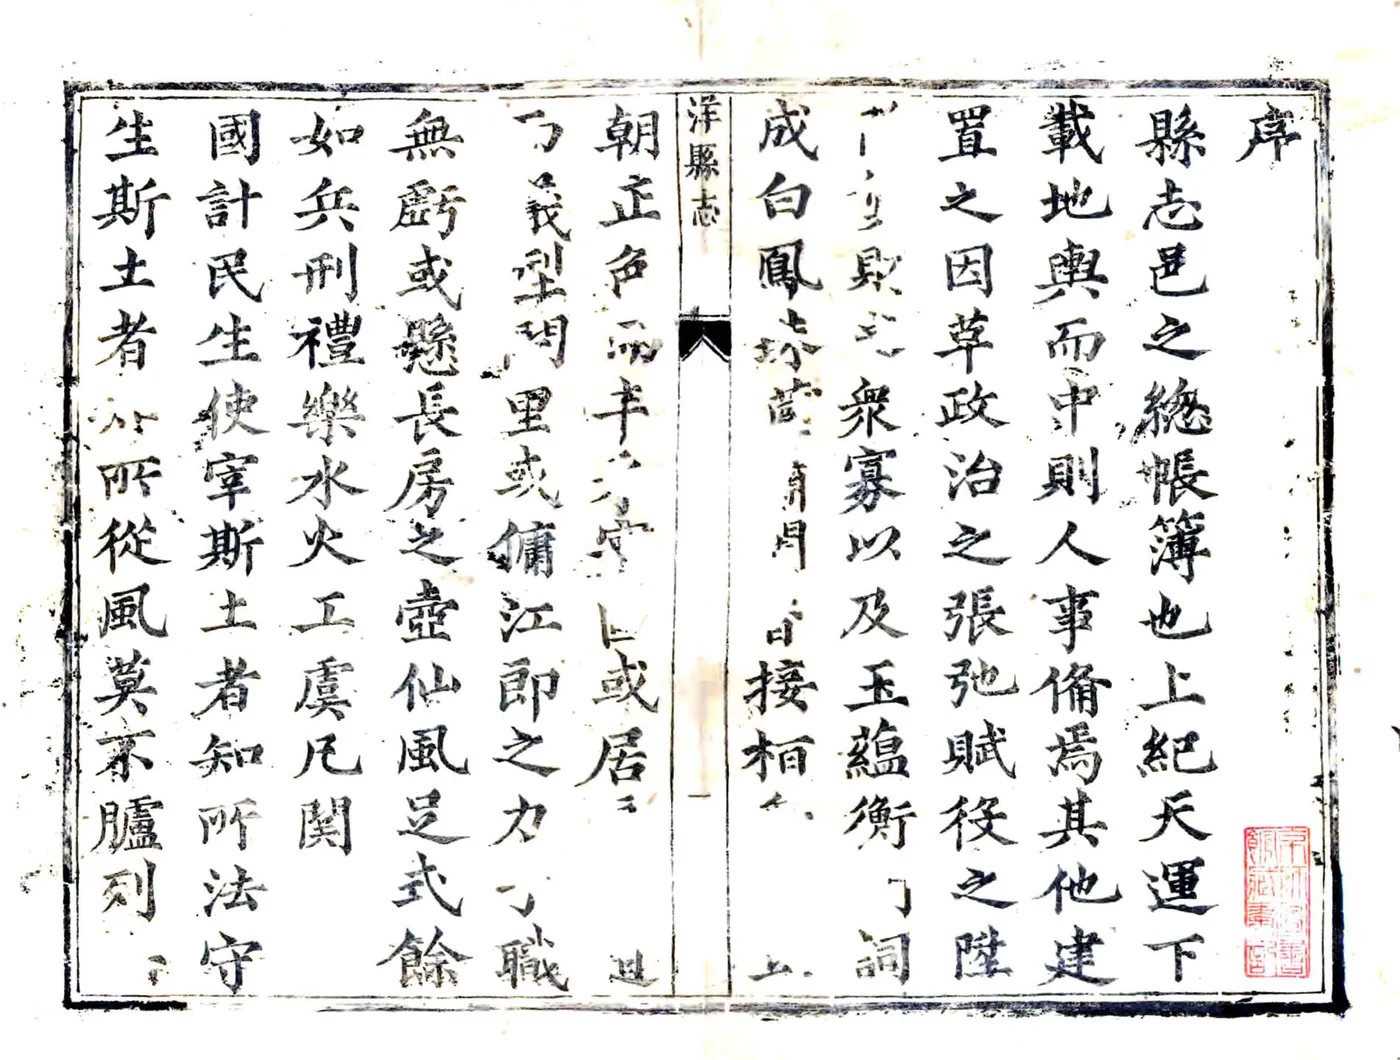 序
縣志邑之總帳簿也上紀天運下
載地輿而中則人事脩焉其他建
置之因革政治之張弛賦役之陞
眾寡以及玉蘊衡詞
成白鳳接栢
洋縣志
一
朝正色年或居
義型閭里或傭江郎之力職
無虧或懸長房之壺仙風足式餘
如兵刑禮樂水火工虞凡関
國計民生使宰斯土者知所法守
生斯土者所從風莫不臚列